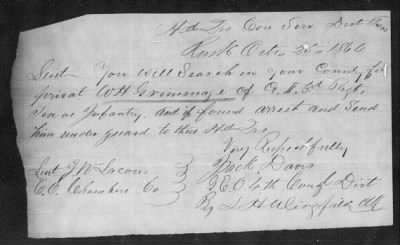 Hd Qrs Con Serv Dist Texas
Rusk Oct 25th 1864
Lieut You Will Search in Your County for
privat W H Grimmage of Co. 3d Regt.
Texas Infantry. and if found arrest and Send
him under guard to these Hd Qrs
Very Respectfully
Jack Davis
Lieut J W Lacour
E. O. Chambers Co
E O 4th Cong Dist
By